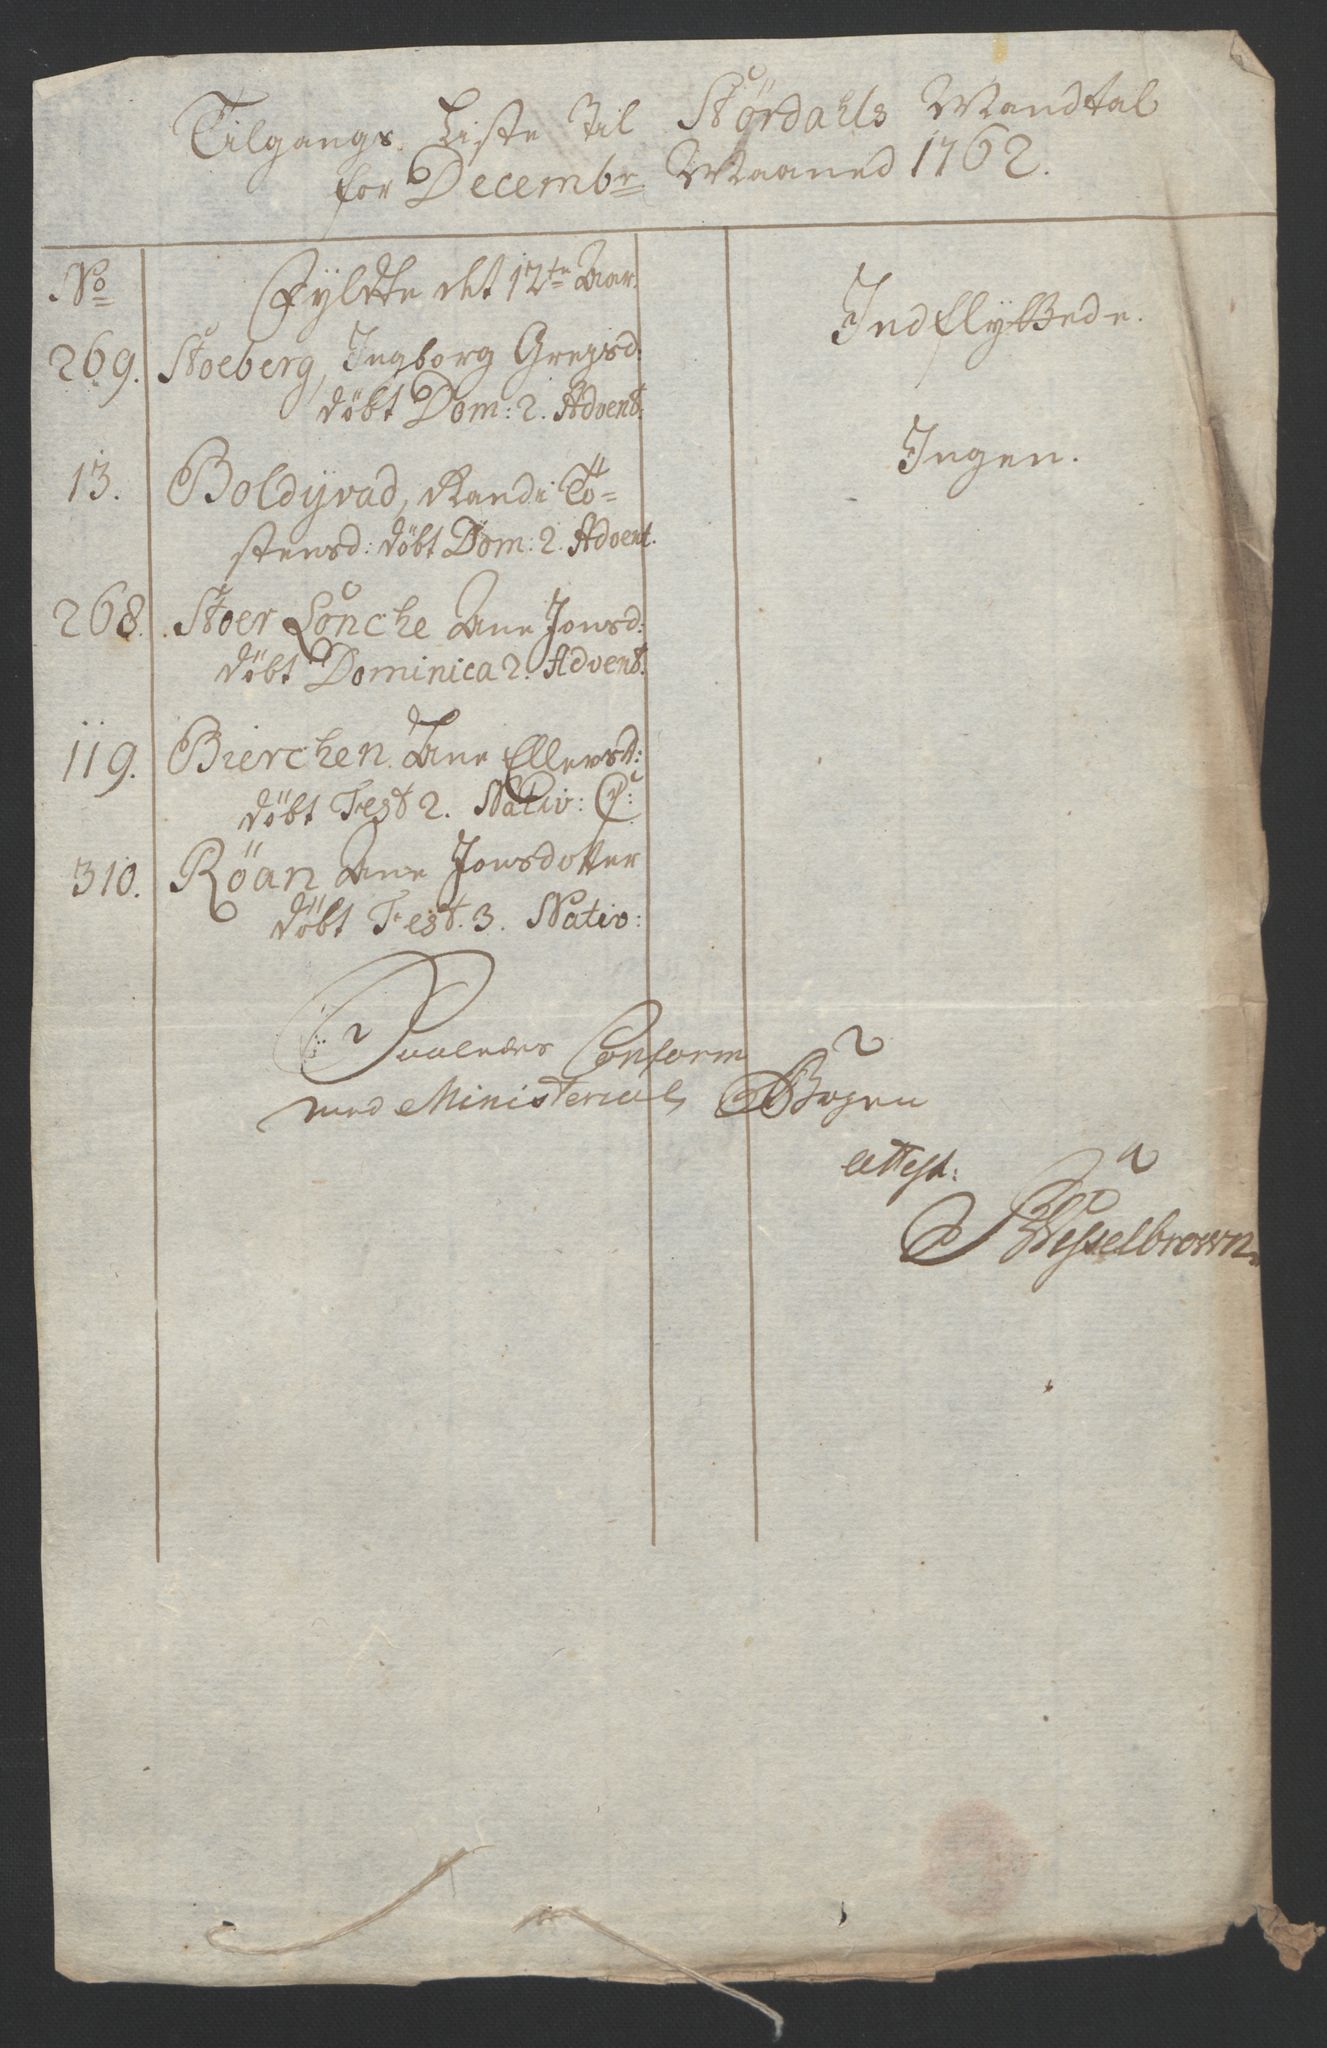 Tilgangs Liste til Størdahls Mandtal
for Decembr Maaned 1762.
No Fyldte det 12te Aar.
Indflyttede.
269. Stoeberg, Ingborg Gregsd:
døbt Dom: 2. Advent.
Ingen.
13. Boldyvad, Randi To-
stensd: døbt Dom: 2. Advent.
268. Stoer Lønche Ane Jonsd:
døbt Dominica 2. Advent.
119. Bierchen Ane Ellevsd:
døbt Fest 2. Nativ: C:
310. Röan Ane Jonsdotter
døbt Fest. 3. Nativ:
Conform
med Ministerial Bogen
attest:
Wesselbrown